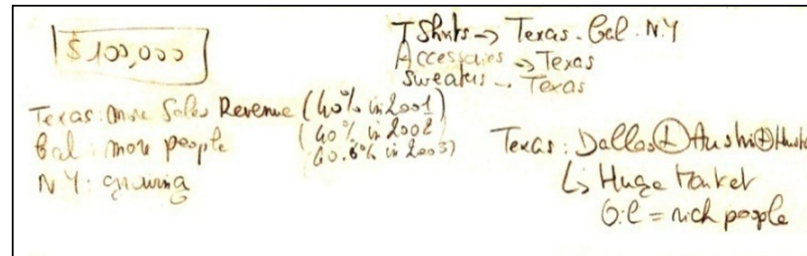 $ 100,000
T Shirts → Texas - Cal. N.Y
Accessories → Texas
Sweaters → Texas
Texas: more Sales Revenue (40% in 2001)
(40% in 2002
60.6% in 2003)
Cal: more people
N Y: growing
Texas: Dallas + Austin +
↳ Huge Market
Oil = rich people